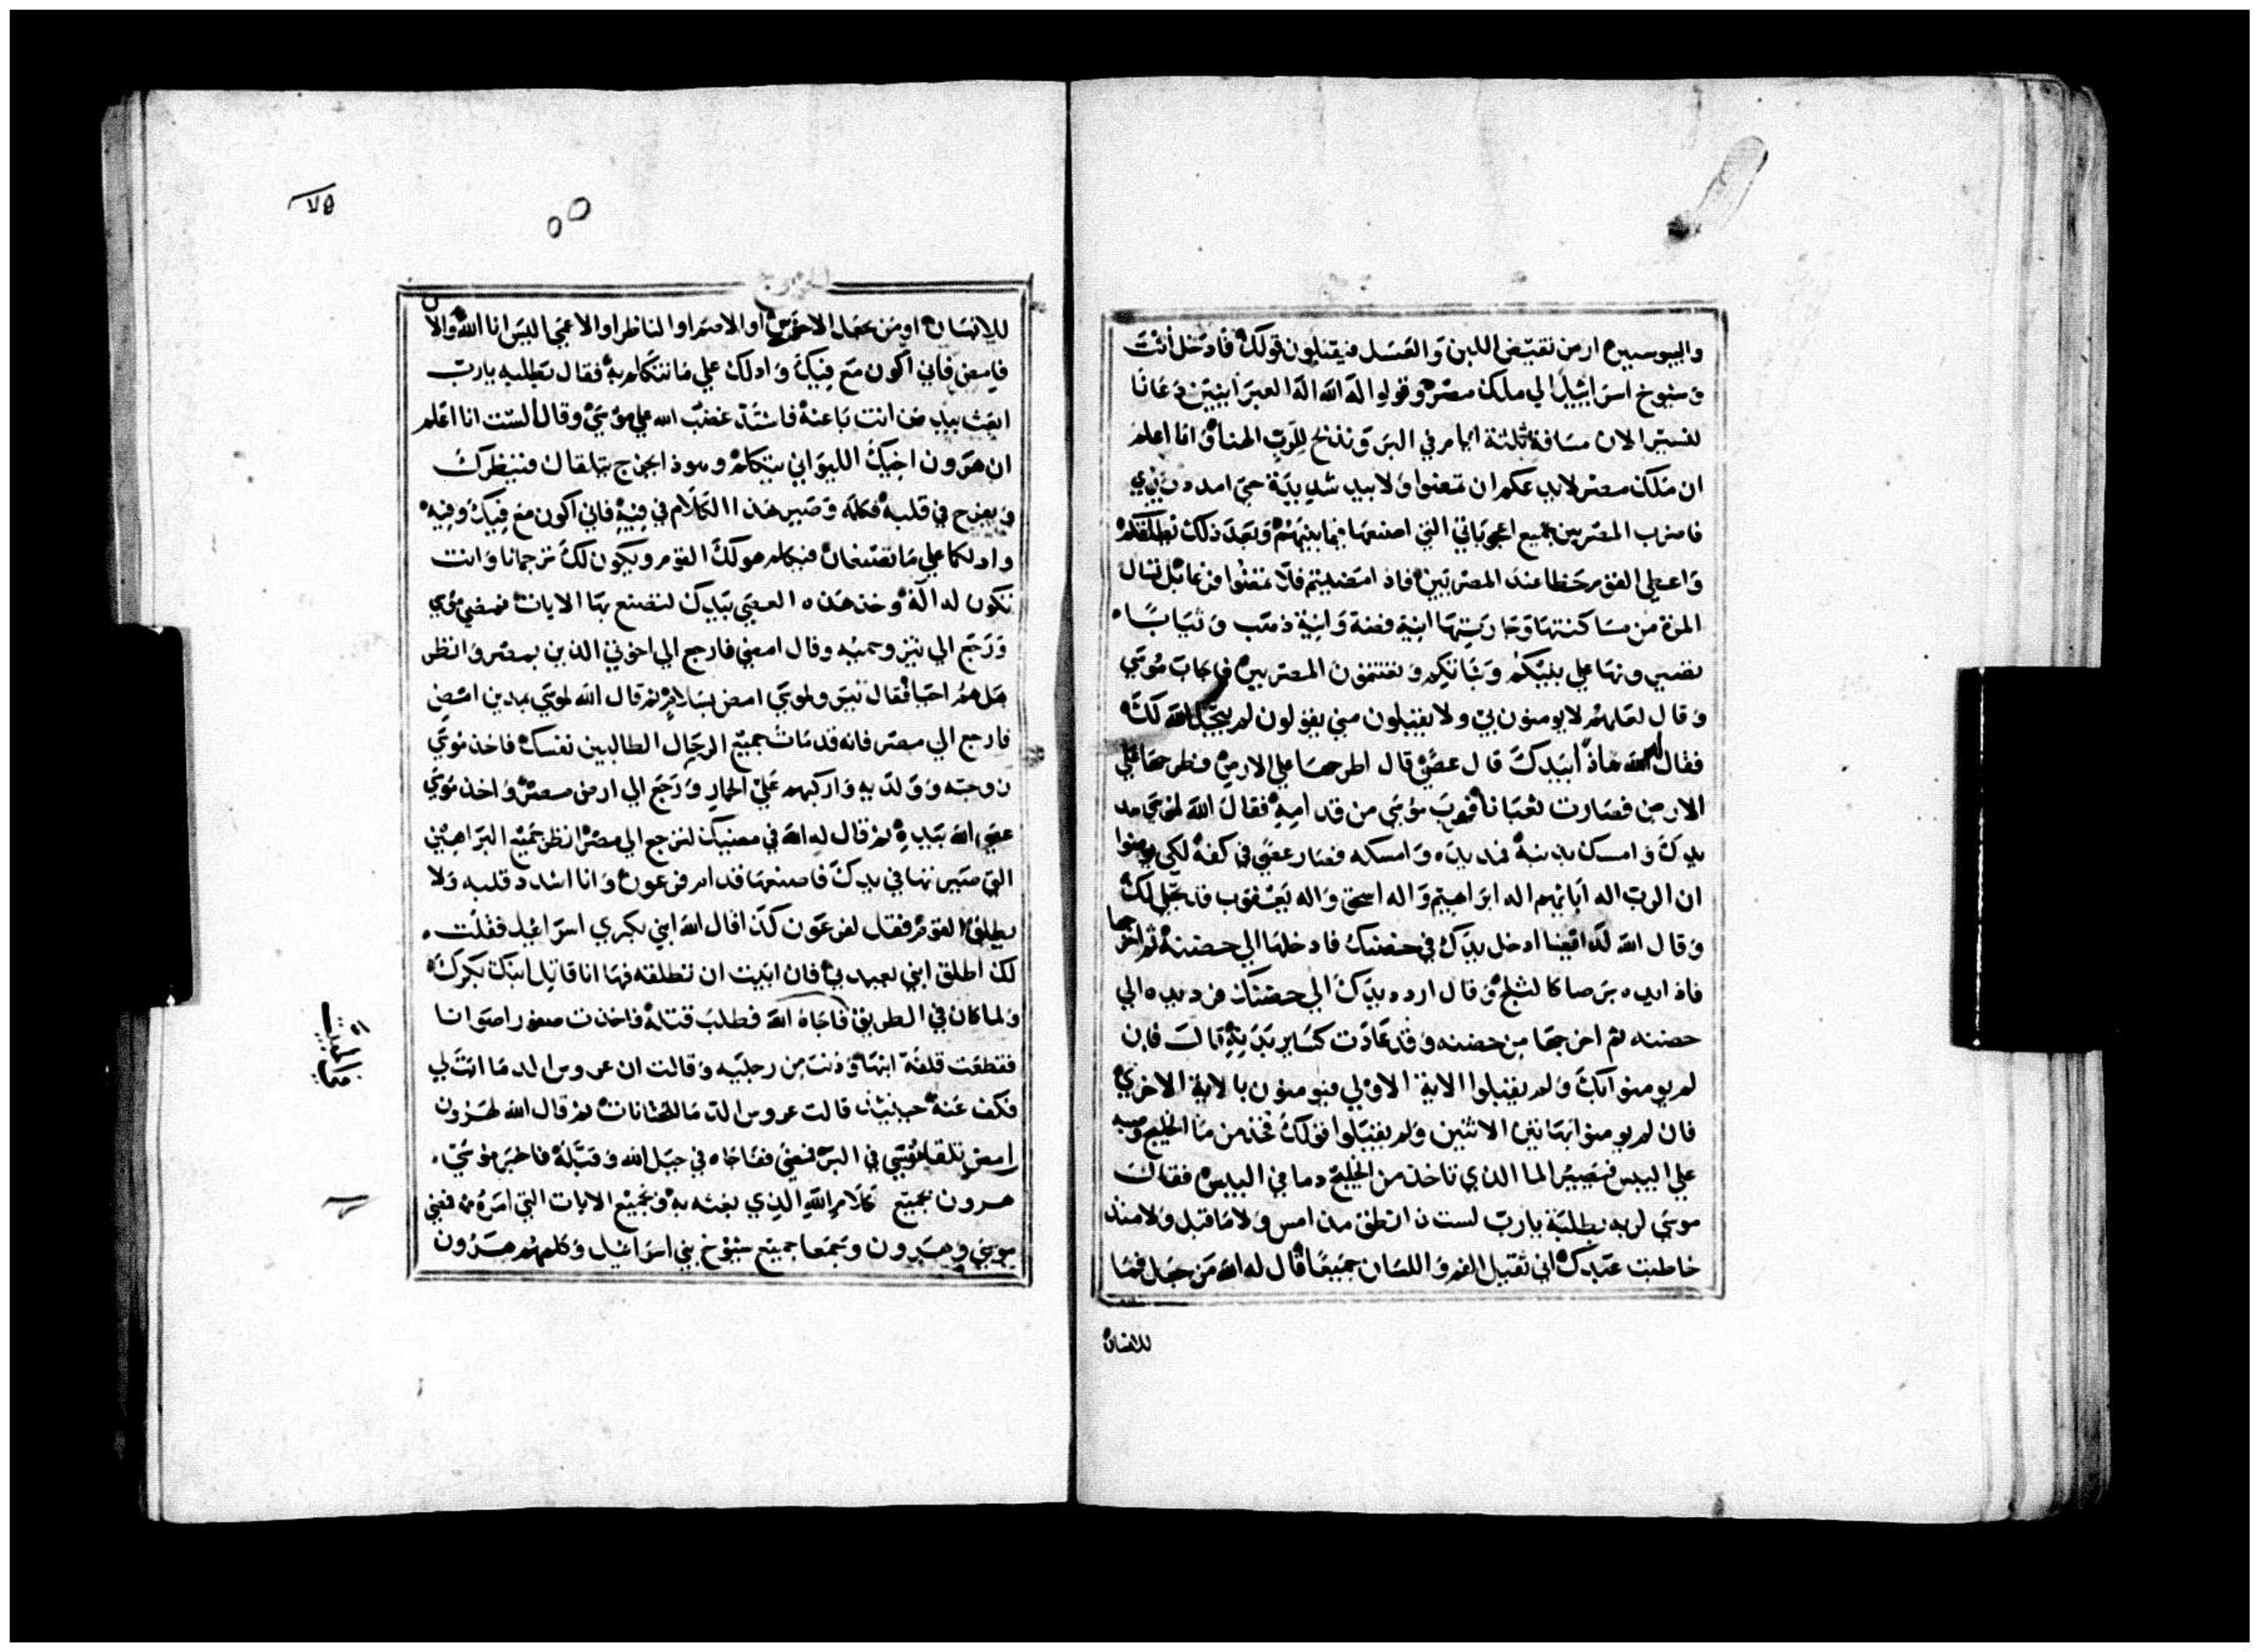 واليبوسيين ارض تفيض اللبن والعسل فيقبلون قولك فادخل أنت
وشيوخ اسرائيل الي ملك مصر وقولوا له الله اله العبرانيين دعانا
لنسير الان مسافة ثلثة ايام في البر ونذبح للرب الهنا وانا اعلم
ان ملك مصر لا يدعكم ان تمضوا ولا بيد شديدة حتي امد يدي
فاضرب المصريين بجميع اعجوباتي التي اصنعها فيما بينهم وبعد ذلك نطلقكم
واعطي القوم حظا عند المصريين فاذا مضيتم فلا تمضوا فرغا بل تسال
المرة من مساكنتها وجاريتها انية فضة وانية ذهب وثيابا
تضعيرونها علي بنيكم وبناتكم وتغتنمون المصريين فاجاب موسي
وقال لعلهم لا يومنون بي ولا يقبلون مني يقولون لم يتجل الله لك
فقال له الله ماذا بيدك قال عصي قال اطرحها علي الارض فطرحها علي
الارض فصارت ثعبانا فهرب موسي من قدامه فقال الله لموسي مد
يدك وامسك بذنبه فمد يده وامسكه فصار عصي في كفه لكي يومنوا
ان الرب اله ابايهم اله ابراهيم واله اسحق واله يعقوب قد تجلي لك
وقال الله له ايضا ادخل يدك في حضنك فادخلها الي حضنه ثم اخرجها
فاذا يده برصا كالثلج وقال اردد يدك الي حضنك فرد يده الي
حضنه ثم اخرجها من حضنه وقد عادت كساير بدنه قال فان
لم يومنوا بك ولم يقبلوا الاية الاولي فيومنون بالاية الاخري
فان لم يومنوا بهاتين الاثنين ولم يقبلوا قولك فخذ من ما الخليج وصبه
علي اليبس فيصير الما الذي تاخذ من الخليج دما في اليبس فقال
موسي لربه نطلبة يارب لست انطق من امس ولا ما قبل ولا منذ
خاطبت عبدك اني ثقيل الفم واللسان جميعا قال له الله من جعل فما
للانسان
الخروج
٧٥
٥٥
للانسان او من جعل الاخرس او الاصم او الناظر او الاعمي اليس انا الله والان
فامض فاني اكون مع فيك وادلك علي ما تتكلم به فقال نطلبه يارب
ابعث بيد من انت باعثه فاشتد غضب الله علي موسي وقال ألست انا اعلم
ان هرون اخيك الليواني يتكلم وهوذا يخرج يتلقاك فينظرك
ويفرح في قلبه فكلمه وصير هذا الكلام في فيه فاني اكون مع فيك وفيه
وادلكما علي ما تصنعان فيكلم هو لك القوم ويكون لك ترجمانا وانت
تكون له اله وخذ هذه العصي بيدك لتصنع بها الايات فمضي موسي
ورجع الي يثرو حميه وقال امضي فارجع الي اخوتي الذين بمصر وانظر
هل هم احيا فقال يثرو لموسي امض بسلام ثم قال الله لموسي بمدين امض
فارجع الي مصر فانه قد مات جميع الرجال الطالبين نفسك فاخذ موسي
زوجته وولديه واركبهم علي الحمار ورجع الي ارض مصر واخذ موسي
عصي الله بيده ثم قال له الله في مضيك لترجع الي مصر انظر جميع البراهين
التي صيرتها في يدك فاصنعها قدام فرعون وانا اشدد قلبه ولا
يطلق القوم فقل لفرعون كذا قال الله ابني بكري اسرائيل فقلت
لك اطلق ابني ليعبدني فان ابيت ان تطلقه فها انا قاتل ابنك بكرك
ولما كان في الطريق فاجاه الله فطلب قتله فاخذت صفورا صوانا
فقطعت قلفة ابنها ودنت من رجليه وقالت ان عروس الدما انت لي
فكف عنه حينئذ قالت عروس الدما للختانات ثم قال الله لهرون
امض تلقا موسي في البر فمضي ففاجاه في جبل الله وقبله فاخبر موسي
هرون بجميع كلام الله الذي بعثه به وبجميع الايات التي امره به فمضي
موسي وهرون وجمعا جميع شيوخ بني اسرائيل وكلمهم هرون